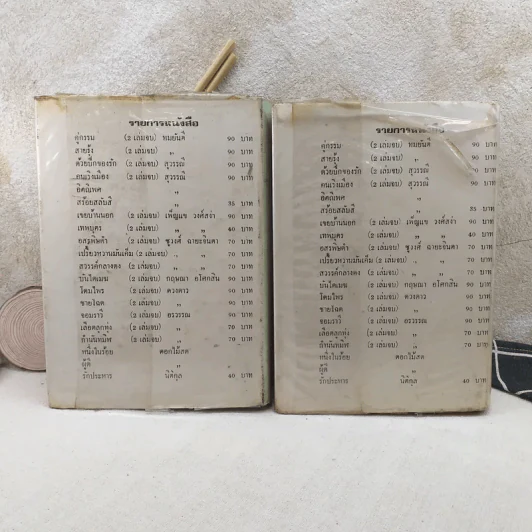 รายการหนังสือ
คู่กรรม (2 เล่มจบ) ทมยันตี 90 บาท
สายรุ้ง (2 เล่มจบ) " 90 บาท
ด้วยปีกของรัก (2 เล่มจบ) สุวรรณี 90 บาท
คนเริงเมือง (2 เล่มจบ) สุวรรณี 90 บาท
อิตถีเพศ "
สร้อยสลับสี " 35 บาท
เขยบ้านนอก (2 เล่มจบ) เพ็ญแข วงศ์สง่า 90 บาท
เทพบุตร (2 เล่มจบ) " " 40 บาท
อสรพิษดำ (2 เล่มจบ) ชูวงศ์ ฉายะจินดา 70 บาท
เปรี้ยวหวานมันเค็ม (2 เล่มจบ) " " 70 บาท
สวรรค์กลางดง (2 เล่มจบ) " " 70 บาท
บันไดเมฆ (2 เล่มจบ) กฤษณา อโศกสิน 90 บาท
โดมไพร (2 เล่มจบ) ดวงดาว 90 บาท
ชายโฉด (2 เล่มจบ) " 90 บาท
จอมราวี (2 เล่มจบ) อรวรรณ 90 บาท
เลือดลูกทุ่ง (2 เล่มจบ) " 70 บาท
กำนันหมีพ (2 เล่มจบ) " 70 บาท
หนึ่งในร้อย ดอกไม้สด
ผู้ดี "
รักประหาร นิติกุล 40 บาท
รายการหนังสือ
คู่กรรม (2 เล่มจบ) ทมยันตี 90 บาท
สายรุ้ง (2 เล่มจบ) " 90 บาท
ด้วยปีกของรัก (2 เล่มจบ) สุวรรณี 90 บาท
คนเริงเมือง (2 เล่มจบ) สุวรรณี 90 บาท
อิตถีเพศ "
สร้อยสลับสี " 35 บาท
เขยบ้านนอก (2 เล่มจบ) เพ็ญแข วงศ์สง่า 90 บาท
เทพบุตร (2 เล่มจบ) " " 40 บาท
อสรพิษดำ (2 เล่มจบ) ชูวงศ์ ฉายะจินดา 70 บาท
เปรี้ยวหวานมันเค็ม (2 เล่มจบ) " " 70 บาท
สวรรค์กลางดง (2 เล่มจบ) " " 70 บาท
บันไดเมฆ (2 เล่มจบ) กฤษณา อโศกสิน 90 บาท
โดมไพร (2 เล่มจบ) ดวงดาว 90 บาท
ชายโฉด (2 เล่มจบ) " 90 บาท
จอมราวี (2 เล่มจบ) อรวรรณ 90 บาท
เลือดลูกทุ่ง (2 เล่มจบ) " 70 บาท
(2 เล่มจบ) " 70 บาท
หนึ่งในร้อย ดอกไม้สด
ผู้ดี "
รักประหาร นิติกุล 40 บาท